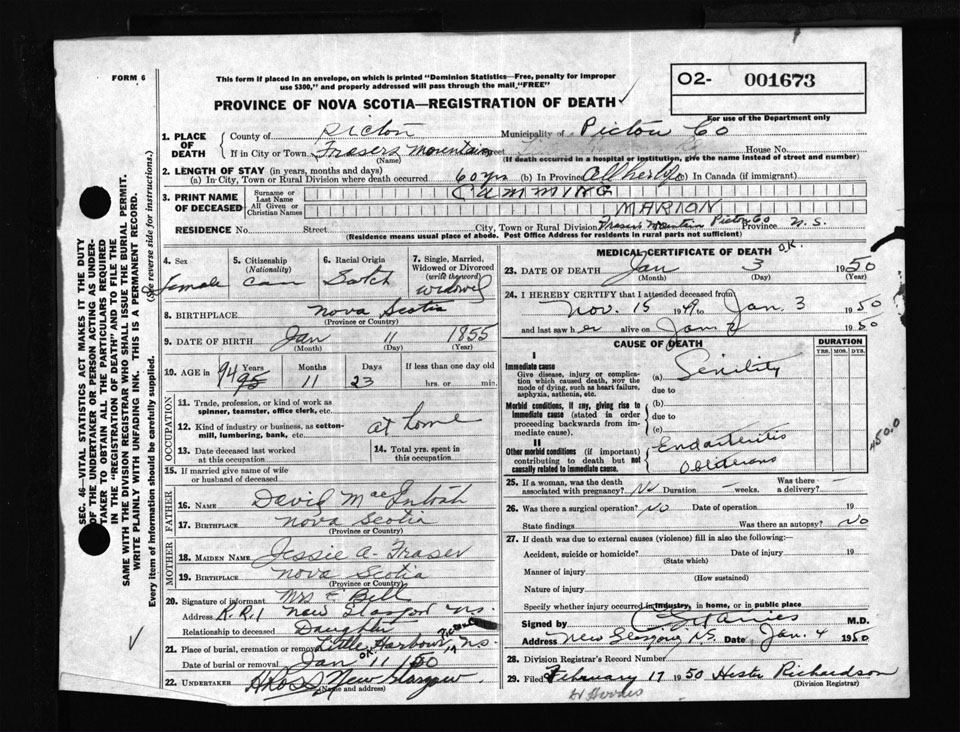 FORM 6
This form if placed in an envelope, on which is printed "Dominion Statistics—Free, penalty for improper
use $300," and properly addressed will pass through the mail "FREE"
O2- 001673
For use of the Department only
PROVINCE OF NOVA SCOTIA—REGISTRATION OF DEATH ✓
1. PLACE OF DEATH
County of Pictou Municipality of Pictou Co
If in City or Town Frasers Mountain Street House No.
(Name) (If death occurred in a hospital or institution, give the name instead of street and number)
2. LENGTH OF STAY (in years, months and days)
(a) In City, Town or Rural Division where death occurred 60 yrs (b) In Province All her life (c) In Canada (if immigrant)
3. PRINT NAME OF DECEASED
Surname or Last Name CAMMING
All Given or Christian Names MARION
RESIDENCE No. Street City, Town or Rural Division Frasers Mountain Pictou Co Province N.S.
(Residence means usual place of abode. Post Office Address for residents in rural parts not sufficient)
4. Sex female
5. Citizenship (Nationality) Can
6. Racial Origin Scotch
7. Single, Married, Widowed or Divorced (write the word) widowed
8. BIRTHPLACE Nova Scotia
(Province or Country)
9. DATE OF BIRTH Jan 11 1855
(Month) (Day) (Year)
10. AGE in Years Months Days If less than one day old
94 95 11 23 hrs. or min.
OCCUPATION
11. Trade, profession, or kind of work as spinner, teamster, office clerk, etc.
12. Kind of industry or business, as cotton-mill, lumbering, bank, etc.
at home
13. Date deceased last worked at this occupation
14. Total yrs. spent in this occupation
15. If married give name of wife or husband of deceased
FATHER
16. NAME David MacIntosh
17. BIRTHPLACE Nova Scotia
MOTHER
18. MAIDEN NAME Jessie A. Fraser
19. BIRTHPLACE Nova Scotia
(Province or Country)
20. Signature of informant Mrs E Bell
Address R.R.1 New Glasgow N.S.
Relationship to deceased Daughter
21. Place of burial, cremation or removal Little Harbour N.S.
Date of burial or removal Jan 11 1950
OK.
22. UNDERTAKER New Glasgow
(Name and address)
MEDICAL CERTIFICATE OF DEATH O.K.
23. DATE OF DEATH Jan 3 1950
(Month) (Day) (Year)
24. I HEREBY CERTIFY that I attended deceased from
Nov. 15 1949 to Jan. 3 1950
and last saw her alive on Jan 2 1950
CAUSE OF DEATH
DURATION
YRS. MOS. DYS.
I
Immediate cause
Give disease, injury or complication which caused death, NOT the mode of dying, such as heart failure, asphyxia, asthenia, etc.
(a) Senility
due to
Morbid conditions, if any, giving rise to immediate cause (stated in order proceeding backwards from immediate cause).
(b)
due to
(c)
II
Other morbid conditions (if important) contributing to death but not causally related to immediate cause.
Endarteritis
Obliterans
25. If a woman, was the death associated with pregnancy? No Duration weeks. Was there delivery?
26. Was there a surgical operation? No Date of operation 19
State findings Was there an autopsy? No
27. If death was due to external causes (violence) fill in also the following:—
Accident, suicide or homicide? Date of injury 19
(State which)
Manner of injury
(How sustained)
Nature of injury
Specify whether injury occurred in industry, in home, or in public place
Signed by M.D.
Address New Glasgow N.S. Date Jan. 4 1950
28. Division Registrar's Record Number
29. Filed February 17 1950 Hester Richardson
(Division Registrar)
SEC. 46—VITAL STATISTICS ACT MAKES IT THE DUTY
OF THE UNDERTAKER OR PERSON ACTING AS UNDER-
TAKER TO OBTAIN ALL THE PARTICULARS REQUIRED
IN THE "REGISTRATION OF DEATH" AND TO FILE THE
SAME WITH THE DIVISION REGISTRAR WHO SHALL ISSUE THE BURIAL PERMIT.
WRITE PLAINLY WITH UNFADING INK. THIS IS A PERMANENT RECORD.
Every item of information should be carefully supplied. (See reverse side for instructions.)